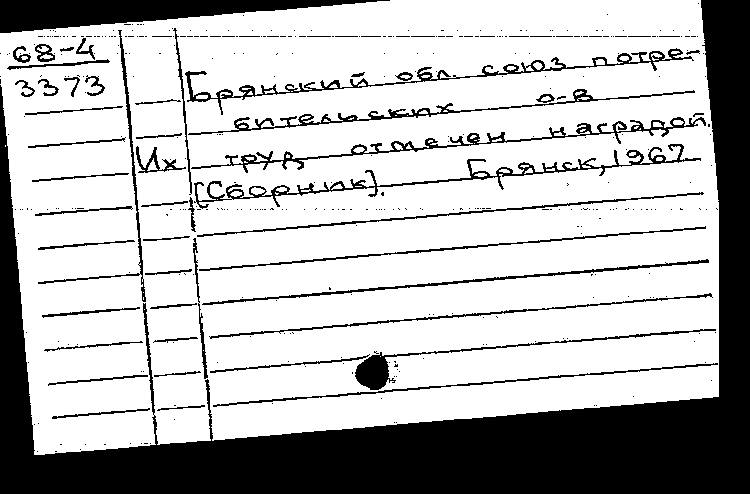 68-4
3373
Брянский обл. союз потре-
бительских о-в
Их труд отмечен наградой.
[Сборник]. Брянск, 1967